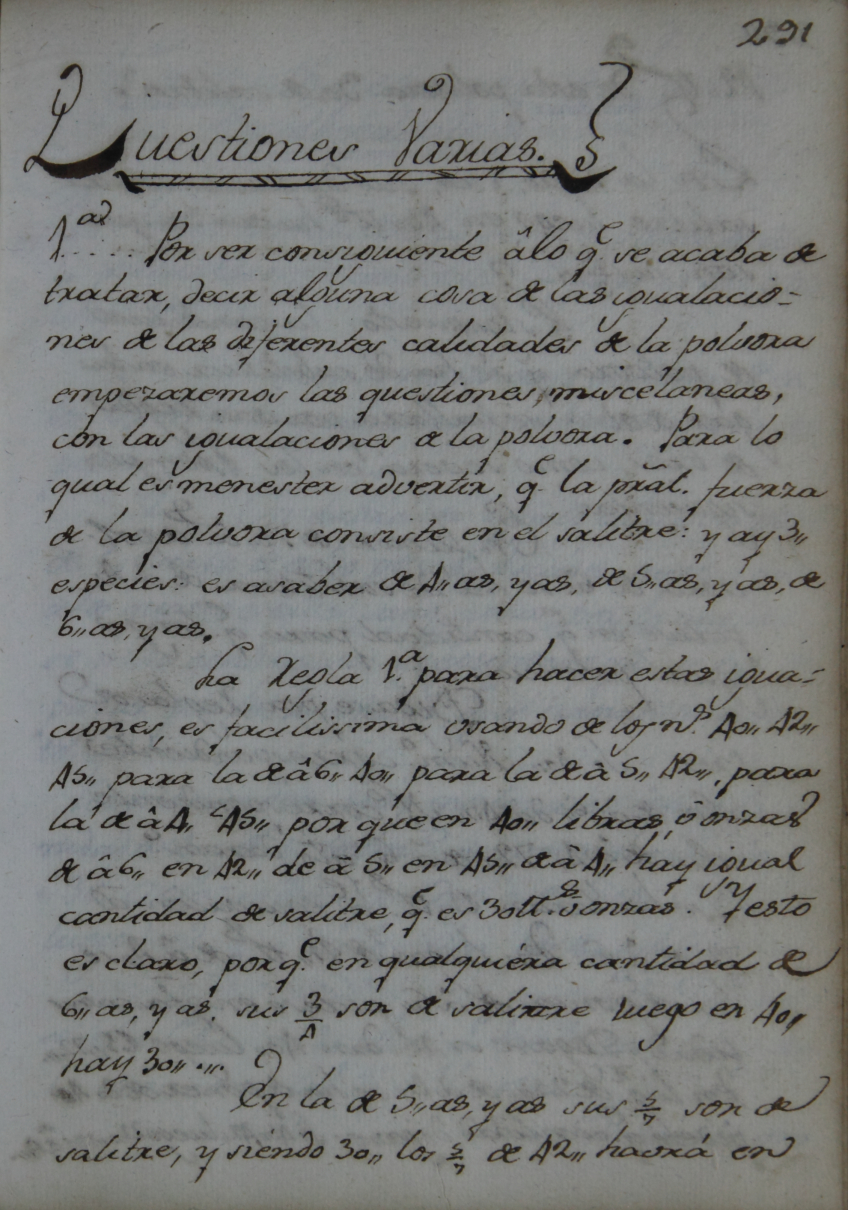 291
Questiones Varias.
1ª.... Por ser consiguiente âlo qᵉ se acaba de
tratar, decir alguna cosa de las igualacio=
nes de las diferentes calidades de la polvora
empezaremos las questiones, miscelaneas,
con las igualaciones de la polvora. Para lo
qual es menester advertir, qᵉ la prãl. fuerza
de la polvora consiste en el salitre: y ay 3,,
especies: es asaber de 4,, as, y as, de 5,, as, y as, de
6,, as, y as.
La Regla 1.ª para hacer estas igua=
ciones, es facilissima usando de los nˢ. 40,, 42,,
45,, para la de â 6,, 40,, para la de â 5,, 42,,. para
la de â 4,, 45,, por que en 40,, libras, ô onzas
de â 6,, en 42,, de â 5,, en 45,, de â 4,, hay igual
cantidad de salitre, qᵉ es 30 ℔.ˢ ô onzas. Y esto
es claro, porqᵉ en qualquiera cantidad de
6,, as, y as. sus 3/4 son de salitre luego en 40,,
hay 30,,...
En la de 5,, as, y as sus 5/7 son de
salitre, y siendo 30,, los 5/7 de 42,, havrá en